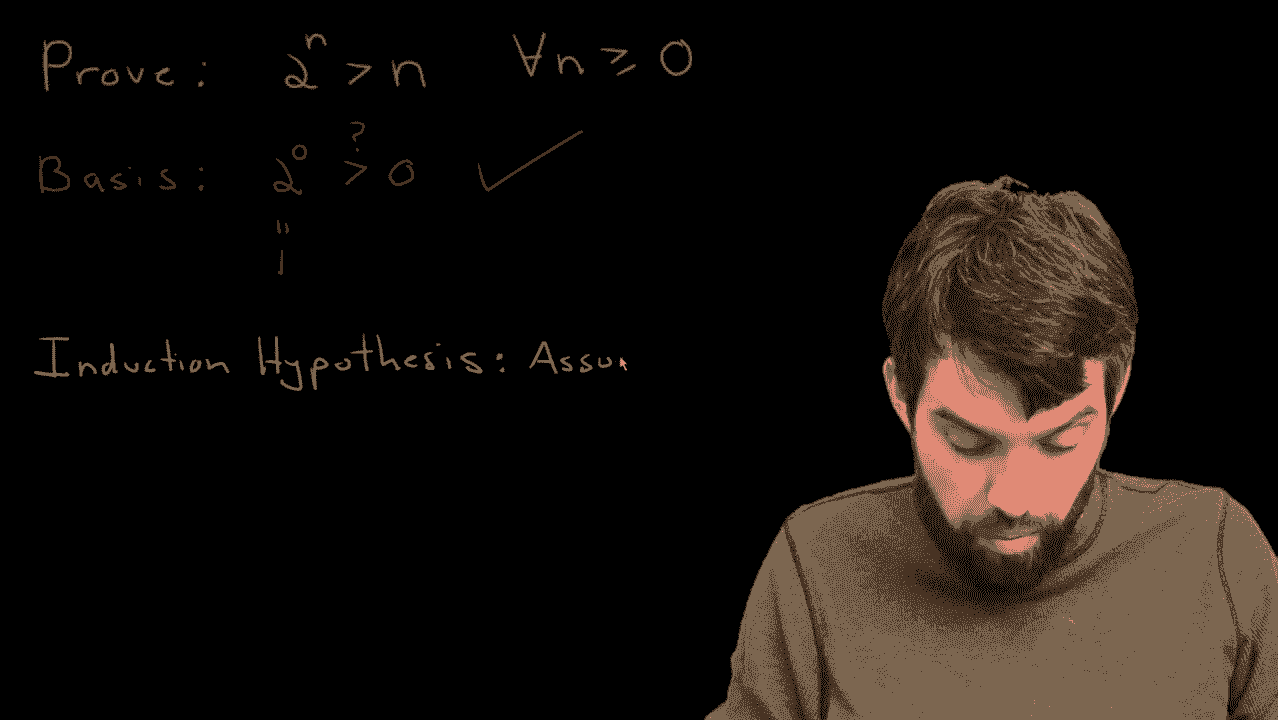 Prove: 2ⁿ > n ∀n ≥ 0
Basis: 2⁰ >? 0 ✓
"
1
Induction Hypothesis: Assu